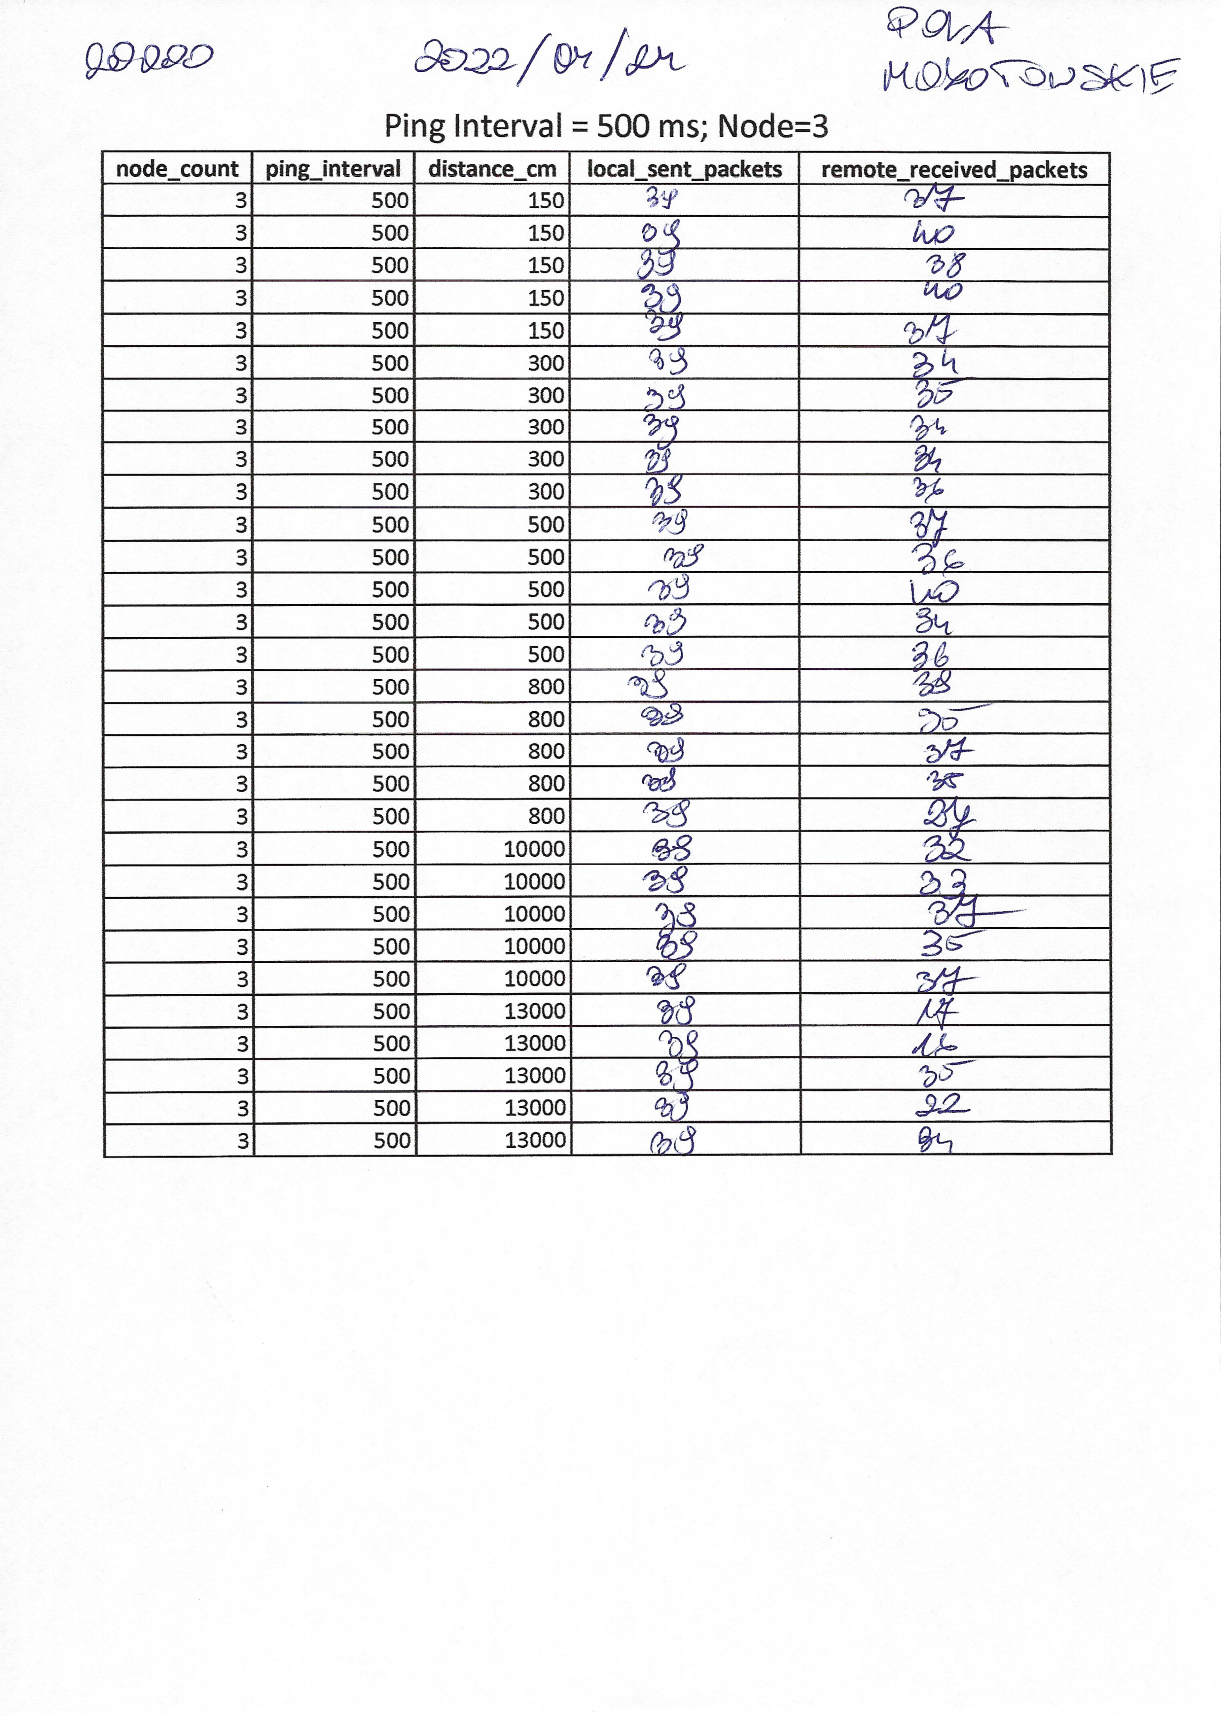 20220 2022/04/24 POLA
MOKOTOWSKIE
Ping Interval = 500 ms; Node=3
node_count ping_interval distance_cm local_sent_packets remote_received_packets
3 500 150 39 37
3 500 150 39 40
3 500 150 39 38
3 500 150 39 40
3 500 150 39 37
3 500 300 39 34
3 500 300 39 35
3 500 300 39 34
3 500 300 39 34
3 500 300 39 36
3 500 500 39 37
3 500 500 39 36
3 500 500 39 40
3 500 500 39 34
3 500 500 39 36
3 500 800 39 39
3 500 800 39 35
3 500 800 39 37
3 500 800 39 35
3 500 800 39 27
3 500 10000 39 32
3 500 10000 39 33
3 500 10000 39 37
3 500 10000 39 35
3 500 10000 39 37
3 500 13000 39 17
3 500 13000 39 16
3 500 13000 39 35
3 500 13000 39 22
3 500 13000 39 34